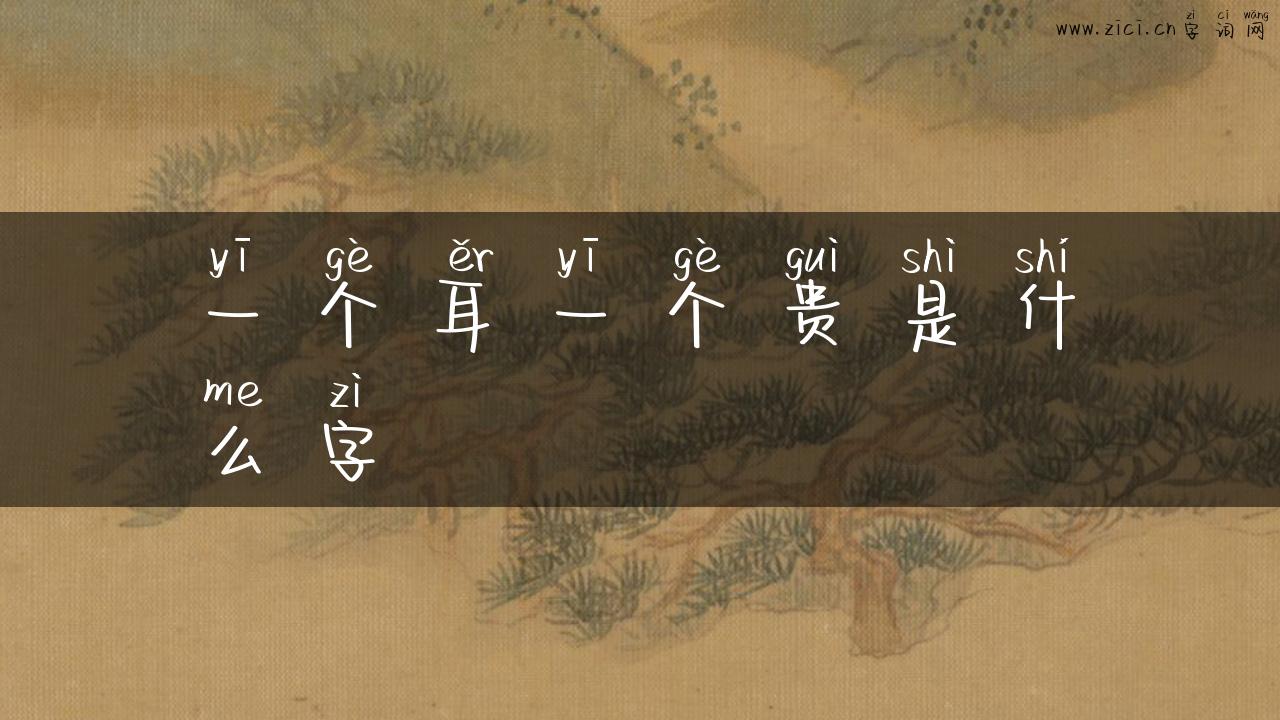 zì cí wǎng
www.zici.cn 字 词 网
yī gè ěr yī gè guì shì shí
一 个 耳 一 个 贵 是 什
me zì
么 字